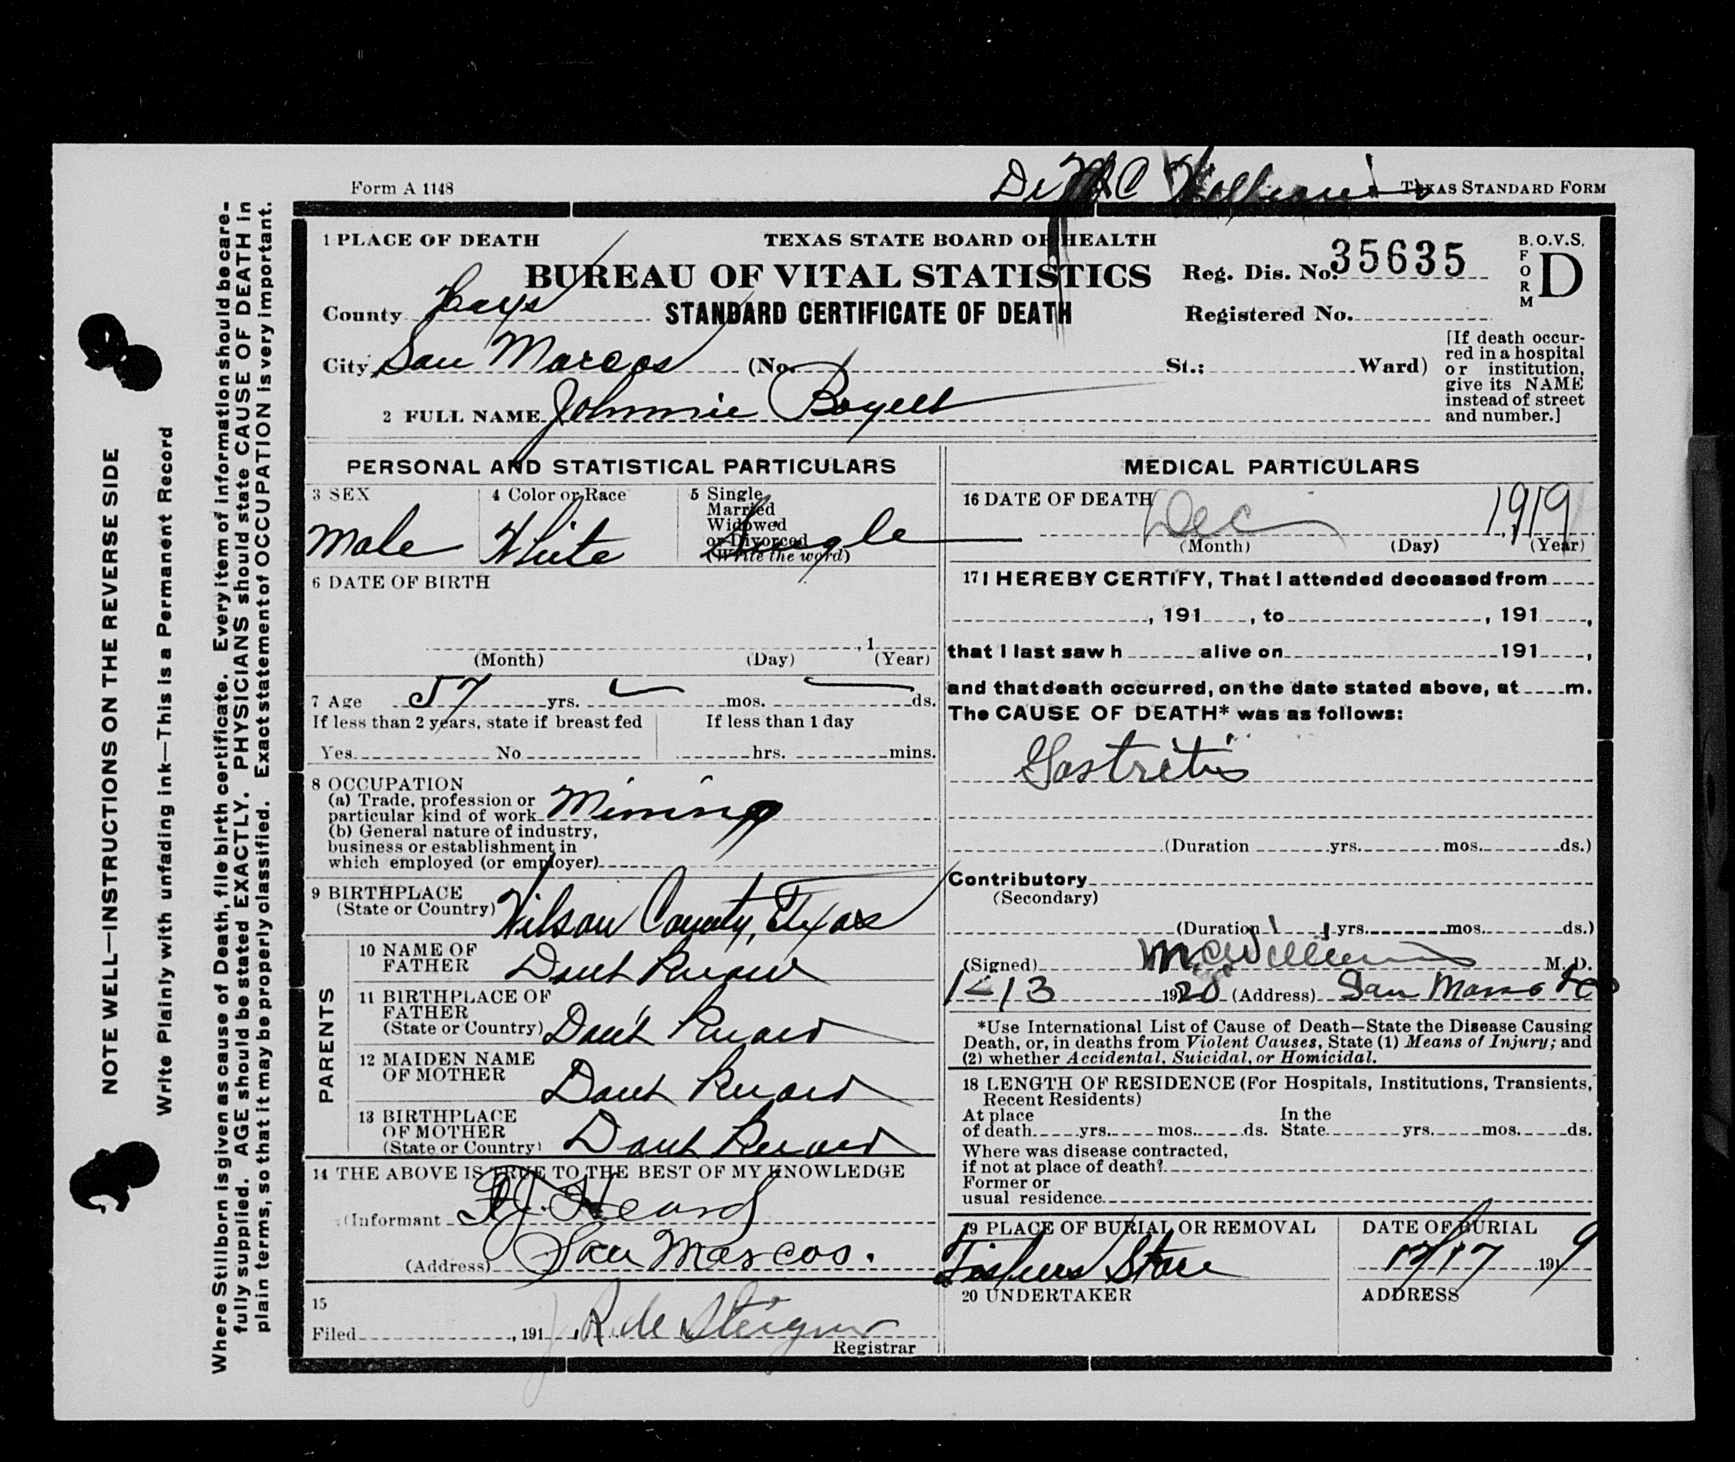 Form A 1148
Dr M C Williams
TEXAS STANDARD FORM
1 PLACE OF DEATH
TEXAS STATE BOARD OF HEALTH
BUREAU OF VITAL STATISTICS
STANDARD CERTIFICATE OF DEATH
Reg. Dis. No. 35635
Registered No.
B. O. V. S.
FORM D
County Hays
City San Marcos (No. St.; Ward)
2 FULL NAME Johnnie Boyett
[If death occur-
red in a hospital
or institution,
give its NAME
instead of street
and number.]
PERSONAL AND STATISTICAL PARTICULARS
3 SEX
Male
4 Color or Race
White
5 Single
Married
Widowed
or Divorced
(Write the word)
Single
6 DATE OF BIRTH
, 1
(Month) (Day) (Year)
7 Age 57 yrs. mos. ds.
If less than 2 years, state if breast fed
Yes No
If less than 1 day
hrs. mins.
8 OCCUPATION
(a) Trade, profession or
particular kind of work Mining
(b) General nature of industry,
business or establishment in
which employed (or employer)
9 BIRTHPLACE
(State or Country) Wilson County, Texas
PARENTS
10 NAME OF
FATHER Don't Know
11 BIRTHPLACE OF
FATHER
(State or Country) Don't Know
12 MAIDEN NAME
OF MOTHER Don't Know
13 BIRTHPLACE
OF MOTHER
(State or Country) Don't Know
14 THE ABOVE IS TRUE TO THE BEST OF MY KNOWLEDGE
(Informant Heard
(Address) San Marcos.
15
Filed , 191
Registrar
MEDICAL PARTICULARS
16 DATE OF DEATH
Dec 1919
(Month) (Day) (Year)
17 I HEREBY CERTIFY, That I attended deceased from
, 191 , to , 191 ,
that I last saw h alive on 191 ,
and that death occurred, on the date stated above, at m.
The CAUSE OF DEATH* was as follows:
Gastritis
(Duration yrs. mos. ds.)
Contributory
(Secondary)
(Duration yrs. mos. ds.)
(Signed) M. C. Williams M. D.
1-13 1920 (Address) San Marcos Tex
*Use International List of Cause of Death—State the Disease Causing
Death, or, in deaths from Violent Causes, State (1) Means of Injury; and
(2) whether Accidental, Suicidal, or Homicidal.
18 LENGTH OF RESIDENCE (For Hospitals, Institutions, Transients,
Recent Residents)
At place
of death yrs. mos. ds.
In the
State yrs. mos. ds.
Where was disease contracted,
if not at place of death?
Former or
usual residence
19 PLACE OF BURIAL OR REMOVAL
Fishers Store
DATE OF BURIAL
12/17 1919
20 UNDERTAKER
ADDRESS
NOTE WELL—INSTRUCTIONS ON THE REVERSE SIDE
Write Plainly with unfading ink—This is a Permanent Record
Where Stillborn is given as cause of Death, file birth certificate. Every item of information should be care-
fully supplied. AGE should be stated EXACTLY. PHYSICIANS should state CAUSE OF DEATH in
plain terms, so that it may be properly classified. Exact statement of OCCUPATION is very important.